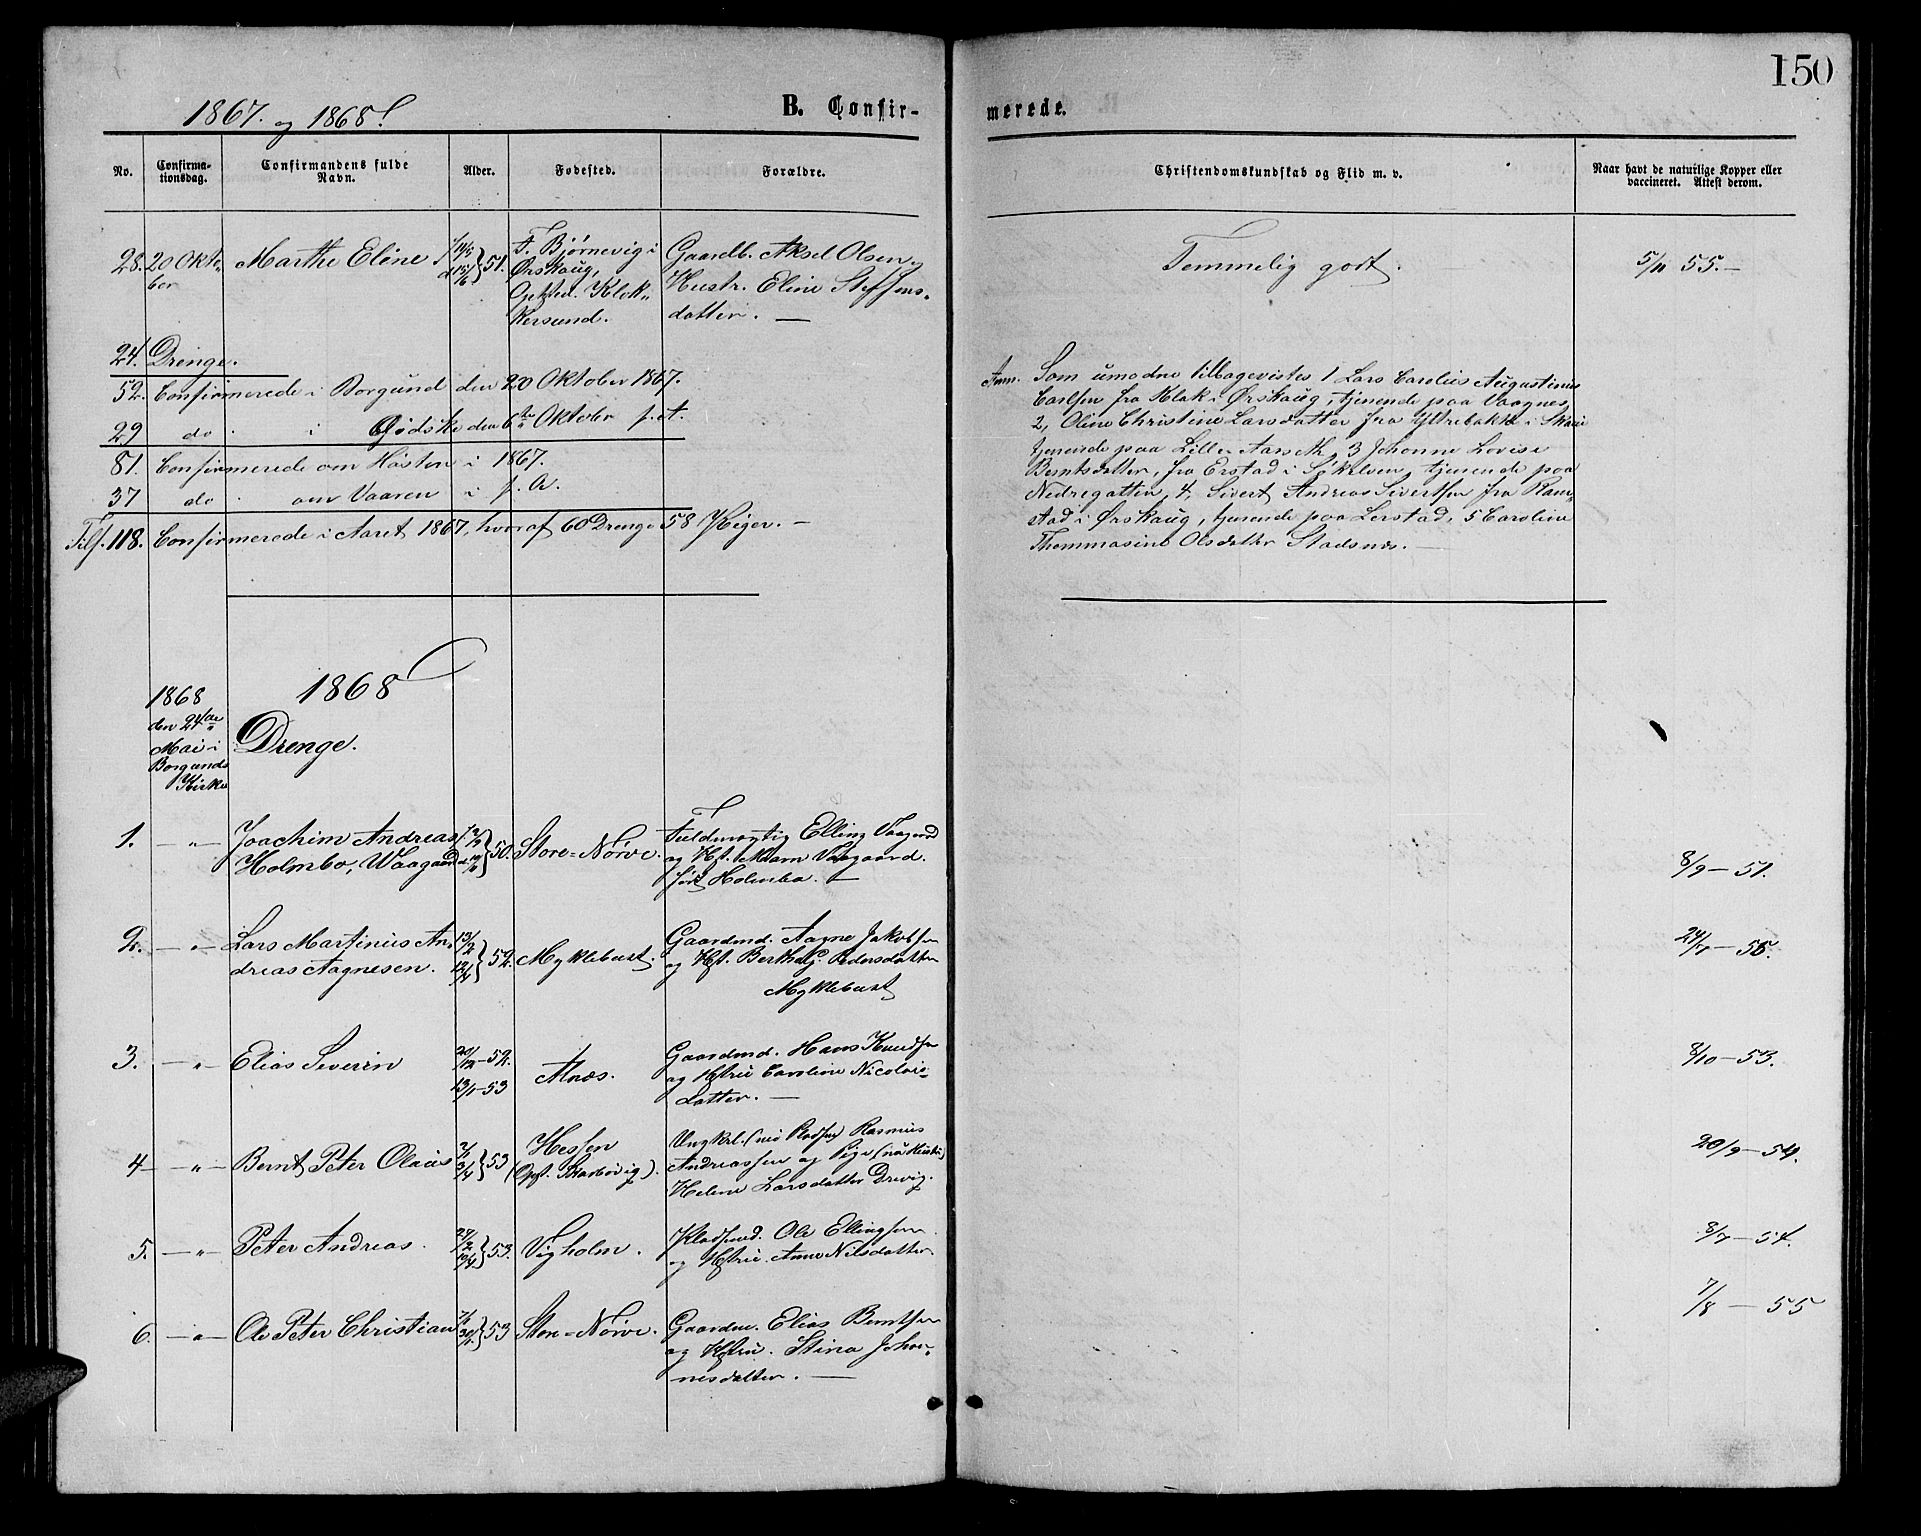 150
1867. og 1868.
B. Confir-
merede.
No.
Confirma-
tionsdag.
Confirmandens fulde
Navn.
Alder.
Fødested.
Forældre.
Christendomskundskab og Flid m. v.
Naar havt de naturlige Kopper eller
vaccineret. Attest derom.
28. 20 Okto-
ber
Marthe Eline
51.
F. Bjørnevig i
Ørskoug,
Opholdsted. Klok-
kersund.
Gaardb. Aksel Olsen,
Hustr. Eline Steffens-
datter. —
Temmelig godt.
5/11 55. —
24. Drenge.
52. Confirmerede i Borgund den 20 Oktober 1867.
29 do. i Gidske den 6te Oktober s. A.
81. Confirmerede om Høsten i 1867.
37 do. om Vaaren i s. A.
Tils. 118. Confirmerede i Aaret 1867, hvoraf 60 Drenge 58 Piger. —
Anm. Som umodne tilbagevistes 1 Lars Carelius Augustinus
Carlsen fra Klok i Ørskoug, tjenende paa Vaagnes,
2, Oline Christine Larsdatter fra Yttrebakke i
tjenende paa Lille-Aarseth, 3 Johanne Lovise
Berntsdatter, fra Erstad i Søkelven, tjenende paa
Nedregotten, 4, Sivert Andreas Sivertsen fra Ram-
stad i Ørskoug, tjenende paa Lerstad, 5 Caroline
Thommasine Olsdatter Stadsnes. —
1868
1868
den 24de
Mai i
Borgunds
Kirke
Drenge.
1. — " —
Joachim Andreas
Holmbo, Waagaard
50.
Store-Nørve.
Fuldmægtig Elling Vaagaard
og Hst. Maren Vaagaard.
født Holmbo. —
8/9 — 51.
2. — " —
Lars Martinus An-
dreas Aagnesen.
13/2
12/4 } 52.
Myklebust.
Gaardmd. Aagne Jakobsen
og Hst. Berthe G. Pedersdatter
Myklebust
24/7 — 55.
3. — " —
Elias Severin
20/12 — 52.
13/1 — 53
Alnæs.
Gaardmd. Hans Knudsen
og Hstrue Caroline Nicolai-
datter. —
8/10 — 53.
4 — " —
Bernt Peter Olaus
2/1
3/4 } 53
Hessen
(Opf. Skarbøvig).
Ungkrl. (nu Pladsm) Rasmus
Andreassen og Pige (nu Hustr.)
Helene Larsdatter Drevig.
20/9 — 54.
5. — " —
Peter Andreas.
27/2
} 53.
Vigholm.
Pladsmd. Ole Ellingsen
og Hstrue. Anne Nilsdatter.
8/7 — 54.
6. — " —
Ole Peter Christian
53
Store-Nørve.
Gaardm. Elias Berntsen
og Hstrue. Stina Johan-
nesdatter. —
7/8 — 55